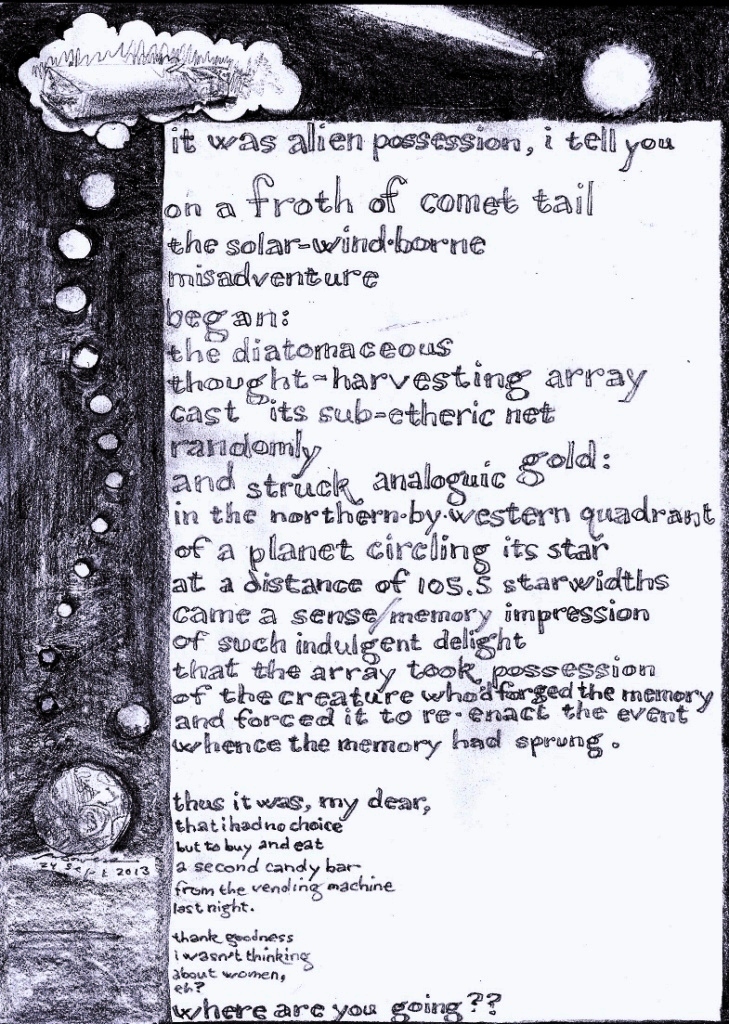 it was alien possession, i tell you
on a froth of comet tail
the solar-wind-borne
misadventure
began:
the diatomaceous
thought-harvesting array
cast its sub-etheric net
randomly
and struck analoguic gold:
in the northern-by-western quadrant
of a planet circling its star
at a distance of 105.5 starwidths
came a sense/memory impression
of such indulgent delight
that the array took possession
of the creature who'd forged the memory
and forced it to re-enact the event
whence the memory had sprung.
thus it was, my dear,
that i had no choice
but to buy and eat
a second candy bar
from the vending machine
last night.
thank goodness
i wasn't thinking
about women,
eh?
where are you going??
24 Sept 2013